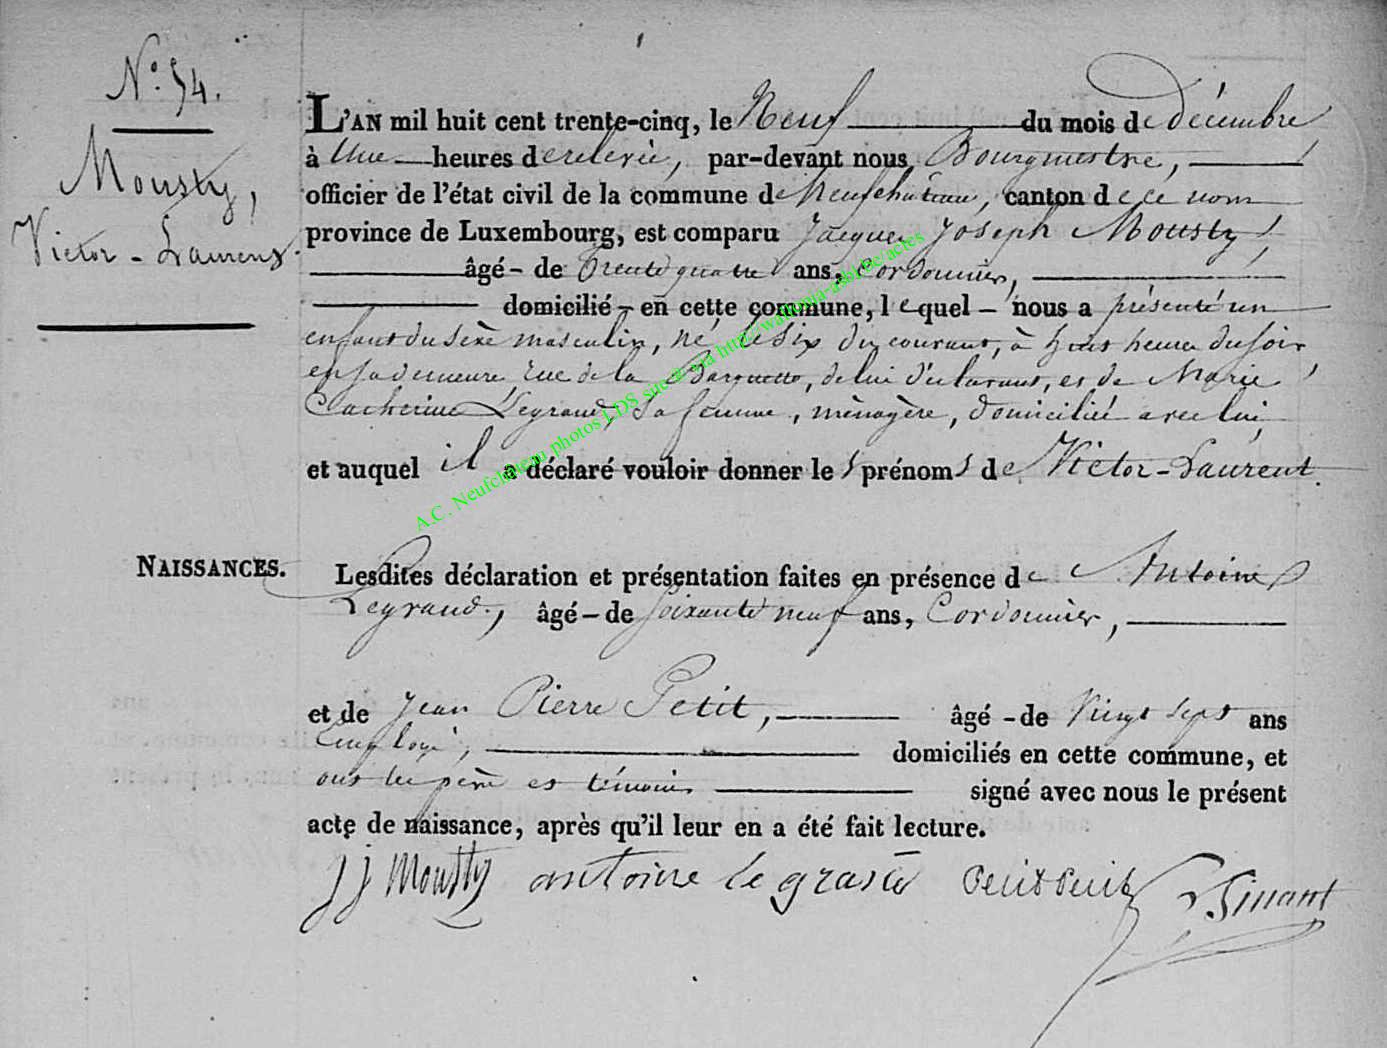 N.° 54.
Mousty,
Victor-Laurent.
L'AN mil huit cent trente-cinq, le Neuf du mois de décembre
à Une heures de relevée, par-devant nous Bourgmestre,
officier de l'état civil de la commune de Neufchâteau, canton de ce nom
province de Luxembourg, est comparu Jacques Joseph Mousty,
âgé - de trente quatre ans, cordonnier,
domicilié - en cette commune, lequel - nous a présenté un
enfant du sexe masculin, né le six du courant, à huit heures du soir
en sa demeure, rue de la, de lui déclarant, et de Marie
Catherine Legrand, sa femme, ménagère, domiciliée avec lui,
et auquel il a déclaré vouloir donner les prénoms de Victor-Laurent.
A.C. Neufchâteau photos LDS site via http://wallonia-asbl.be/actes
NAISSANCES.
Lesdites déclaration et présentation faites en présence de Antoine
Legrand, âgé - de soixante neuf ans, Cordonnier,
et de Jean Pierre Petit, âgé - de Vingt sept ans
Employé, domiciliés en cette commune, et
ont les père et témoins signé avec nous le présent
acte de naissance, après qu'il leur en a été fait lecture.
JJ Mousty antoine le grand Petit